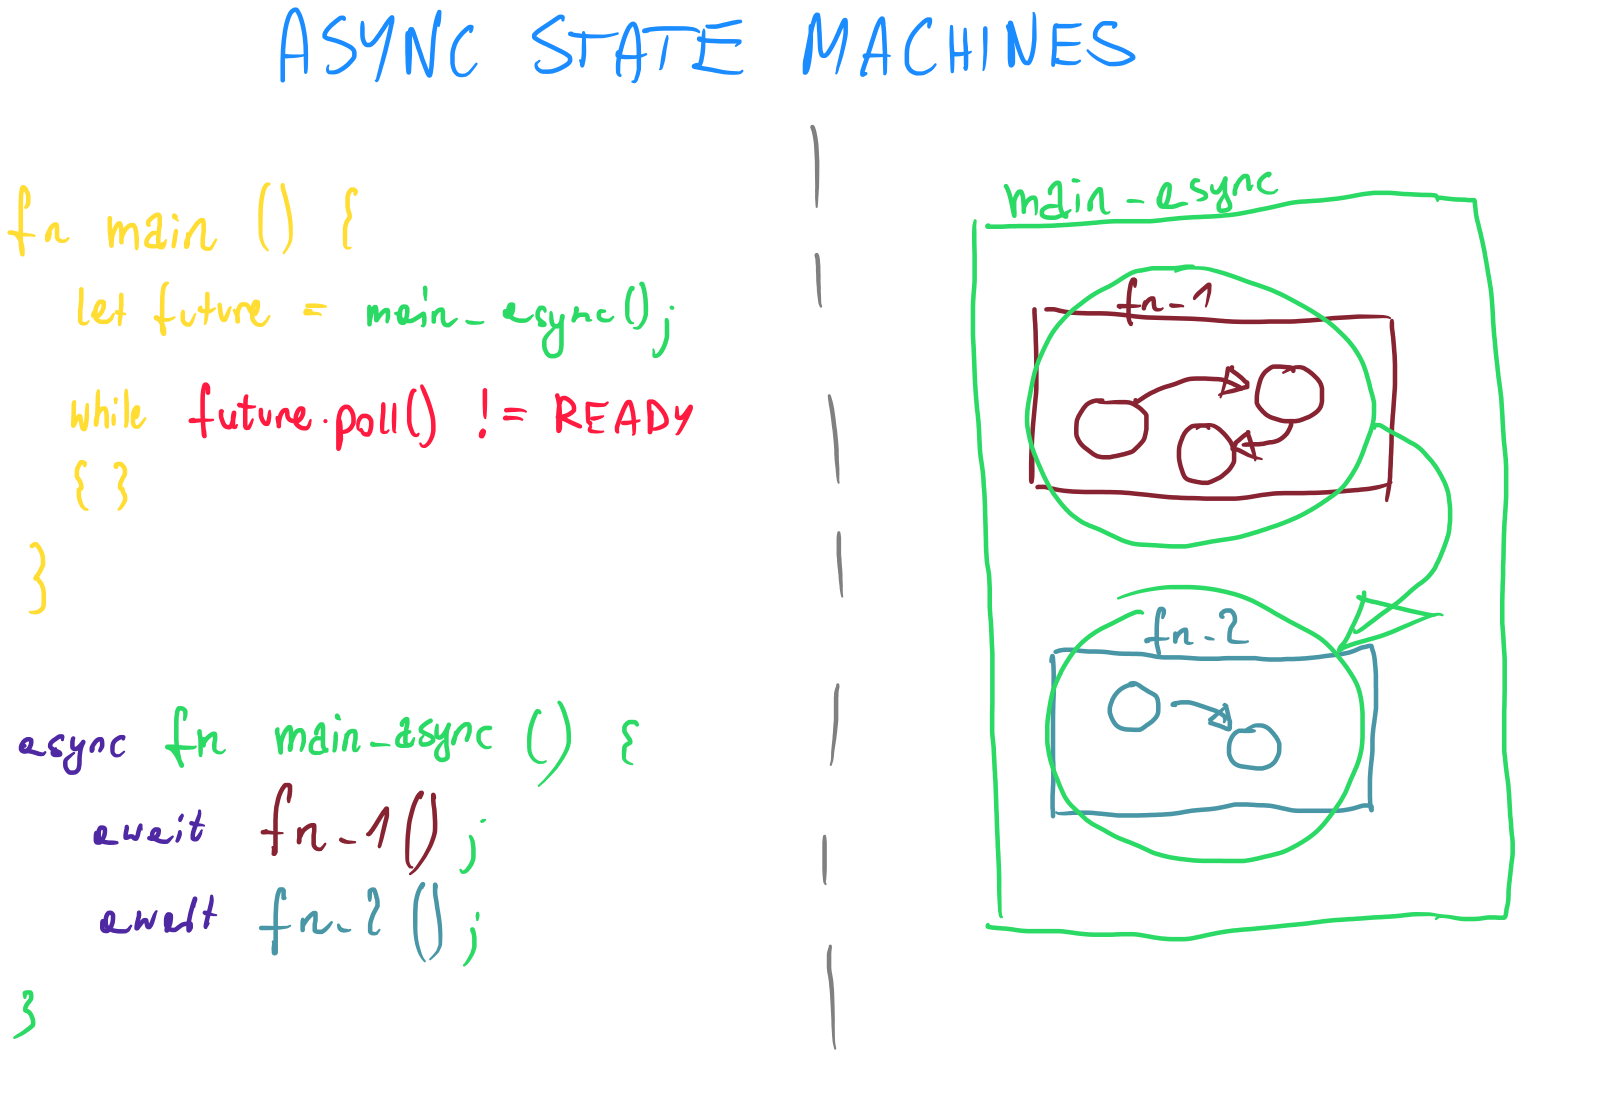 ASYNC STATE MACHINES
fn main () {
let future = main_async();
while future.poll() != READY
{ }
}
async fn main_async () {
await fn_1();
await fn_2();
}
main_async
fn_1
fn_2